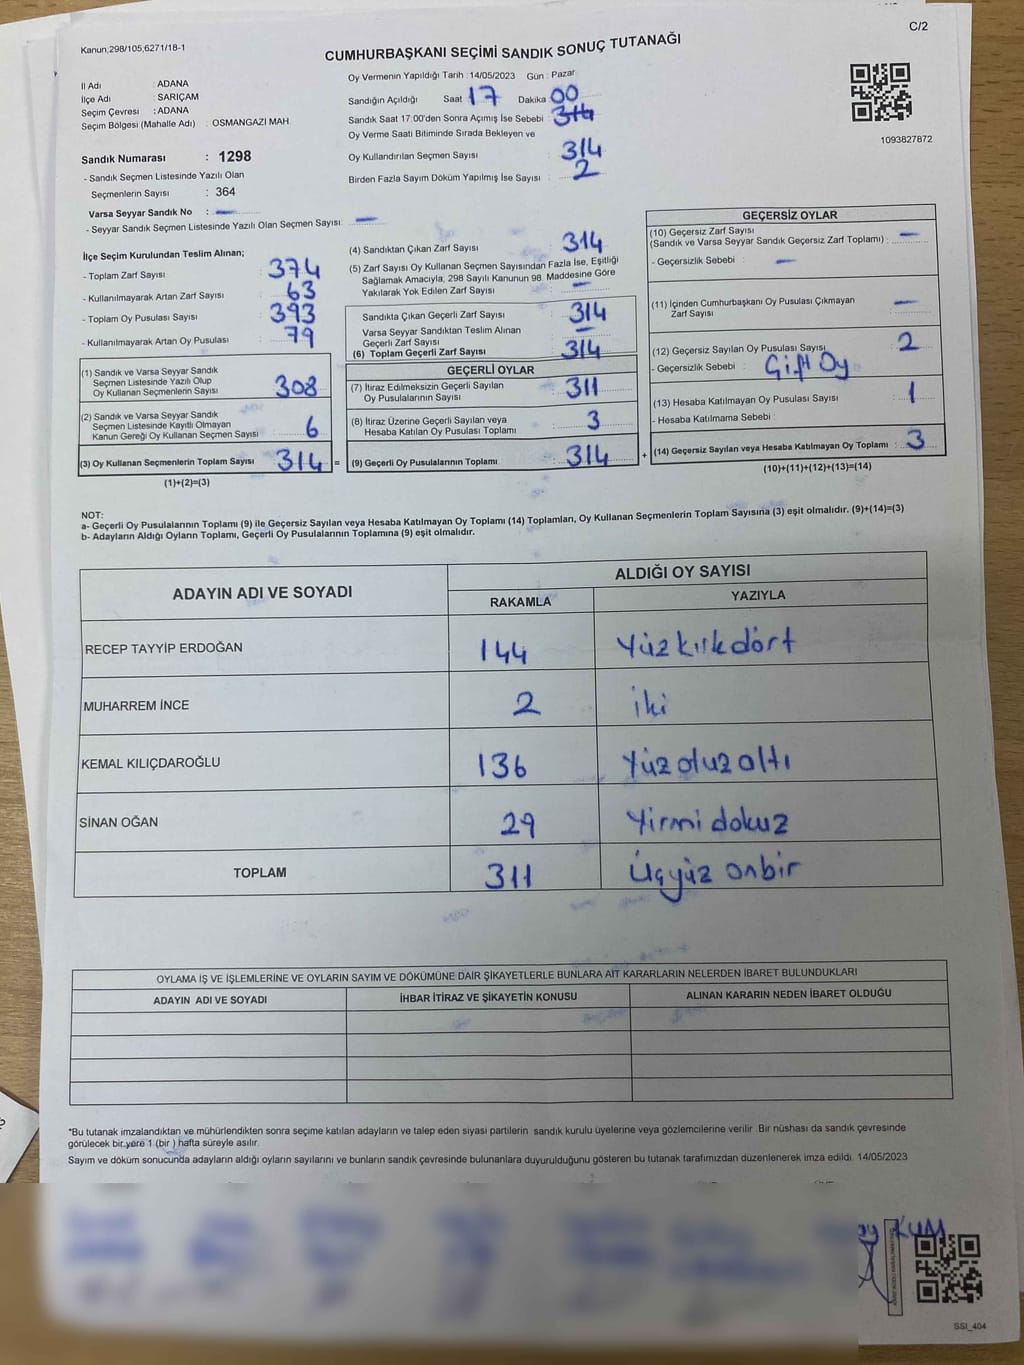 C/2
Kanun,298/105,6271/18-1
CUMHURBAŞKANI SEÇİMİ SANDIK SONUÇ TUTANAĞI
İl Adı : ADANA
İlçe Adı : SARIÇAM
Seçim Çevresi : ADANA
Seçim Bölgesi (Mahalle Adı) : OSMANGAZİ MAH.
Sandık Numarası : 1298
- Sandık Seçmen Listesinde Yazılı Olan
Seçmenlerin Sayısı : 364
Varsa Seyyar Sandık No : —
- Seyyar Sandık Seçmen Listesinde Yazılı Olan Seçmen Sayısı: —
Oy Vermenin Yapıldığı Tarih : 14/05/2023 Gün : Pazar
Sandığın Açıldığı Saat 17 Dakika 00
Sandık Saat 17:00'den Sonra Açımış İse Sebebi : 314
Oy Verme Saati Bitiminde Sırada Bekleyen ve
Oy Kullandırılan Seçmen Sayısı : 314
Birden Fazla Sayım Döküm Yapılmış İse Sayısı : 2
1093827872
İlçe Seçim Kurulundan Teslim Alınan;
- Toplam Zarf Sayısı : 374
- Kullanılmayarak Artan Zarf Sayısı : 63
- Toplam Oy Pusulası Sayısı : 393
- Kullanılmayarak Artan Oy Pusulası : 79
(1) Sandık ve Varsa Seyyar Sandık
Seçmen Listesinde Yazılı Olup
Oy Kullanan Seçmenlerin Sayısı : 308
(2) Sandık ve Varsa Seyyar Sandık
Seçmen Listesinde Kayıtlı Olmayan
Kanun Gereği Oy Kullanan Seçmen Sayısı : 6
(3) Oy Kullanan Seçmenlerin Toplam Sayısı : 314 =
(1)+(2)=(3)
(4) Sandıktan Çıkan Zarf Sayısı : 314
(5) Zarf Sayısı Oy Kullanan Seçmen Sayısından Fazla İse, Eşitliği
Sağlamak Amacıyla; 298 Sayılı Kanunun 98. Maddesine Göre
Yakılarak Yok Edilen Zarf Sayısı : —
Sandıkta Çıkan Geçerli Zarf Sayısı : 314
Varsa Seyyar Sandıktan Teslim Alınan
Geçerli Zarf Sayısı : —
(6) Toplam Geçerli Zarf Sayısı : 314
GEÇERLİ OYLAR
(7) İtiraz Edilmeksizin Geçerli Sayılan
Oy Pusulalarının Sayısı : 311
(8) İtiraz Üzerine Geçerli Sayılan veya
Hesaba Katılan Oy Pusulası Toplamı : 3
(9) Geçerli Oy Pusulalarının Toplamı : 314 +
GEÇERSİZ OYLAR
(10) Geçersiz Zarf Sayısı
(Sandık ve Varsa Seyyar Sandık Geçersiz Zarf Toplamı) : —
- Geçersizlik Sebebi : —
(11) İçinden Cumhurbaşkanı Oy Pusulası Çıkmayan
Zarf Sayısı : —
(12) Geçersiz Sayılan Oy Pusulası Sayısı : 2
- Geçersizlik Sebebi : Çift Oy
(13) Hesaba Katılmayan Oy Pusulası Sayısı : 1
- Hesaba Katılmama Sebebi :
(14) Geçersiz Sayılan veya Hesaba Katılmayan Oy Toplamı : 3
(10)+(11)+(12)+(13)=(14)
NOT:
a- Geçerli Oy Pusulalarının Toplamı (9) ile Geçersiz Sayılan veya Hesaba Katılmayan Oy Toplamı (14) Toplamları, Oy Kullanan Seçmenlerin Toplam Sayısına (3) eşit olmalıdır. (9)+(14)=(3)
b- Adayların Aldığı Oyların Toplamı, Geçerli Oy Pusulalarının Toplamına (9) eşit olmalıdır.
ADAYIN ADI VE SOYADI ALDIĞI OY SAYISI
RAKAMLA YAZIYLA
RECEP TAYYİP ERDOĞAN 144 Yüz kırk dört
MUHARREM İNCE 2 iki
KEMAL KILIÇDAROĞLU 136 Yüz otuz altı
SİNAN OĞAN 29 Yirmi dokuz
TOPLAM 311 Üçyüz onbir
OYLAMA İŞ VE İŞLEMLERİNE VE OYLARIN SAYIM VE DÖKÜMÜNE DAİR ŞİKAYETLERLE BUNLARA AİT KARARLARIN NELERDEN İBARET BULUNDUKLARI
ADAYIN ADI VE SOYADI İHBAR İTİRAZ VE ŞİKAYETİN KONUSU ALINAN KARARIN NEDEN İBARET OLDUĞU
*Bu tutanak imzalandıktan ve mühürlendikten sonra seçime katılan adayların ve talep eden siyasi partilerin sandık kurulu üyelerine veya gözlemcilerine verilir. Bir nüshası da sandık çevresinde
görülecek bir yere 1 (bir) hafta süreyle asılır.
Sayım ve döküm sonucunda adayların aldığı oyların sayılarını ve bunların sandık çevresinde bulunanlara duyurulduğunu gösteren bu tutanak tarafımızdan düzenlenerek imza edildi. 14/05/2023
KUM
SSİ_404